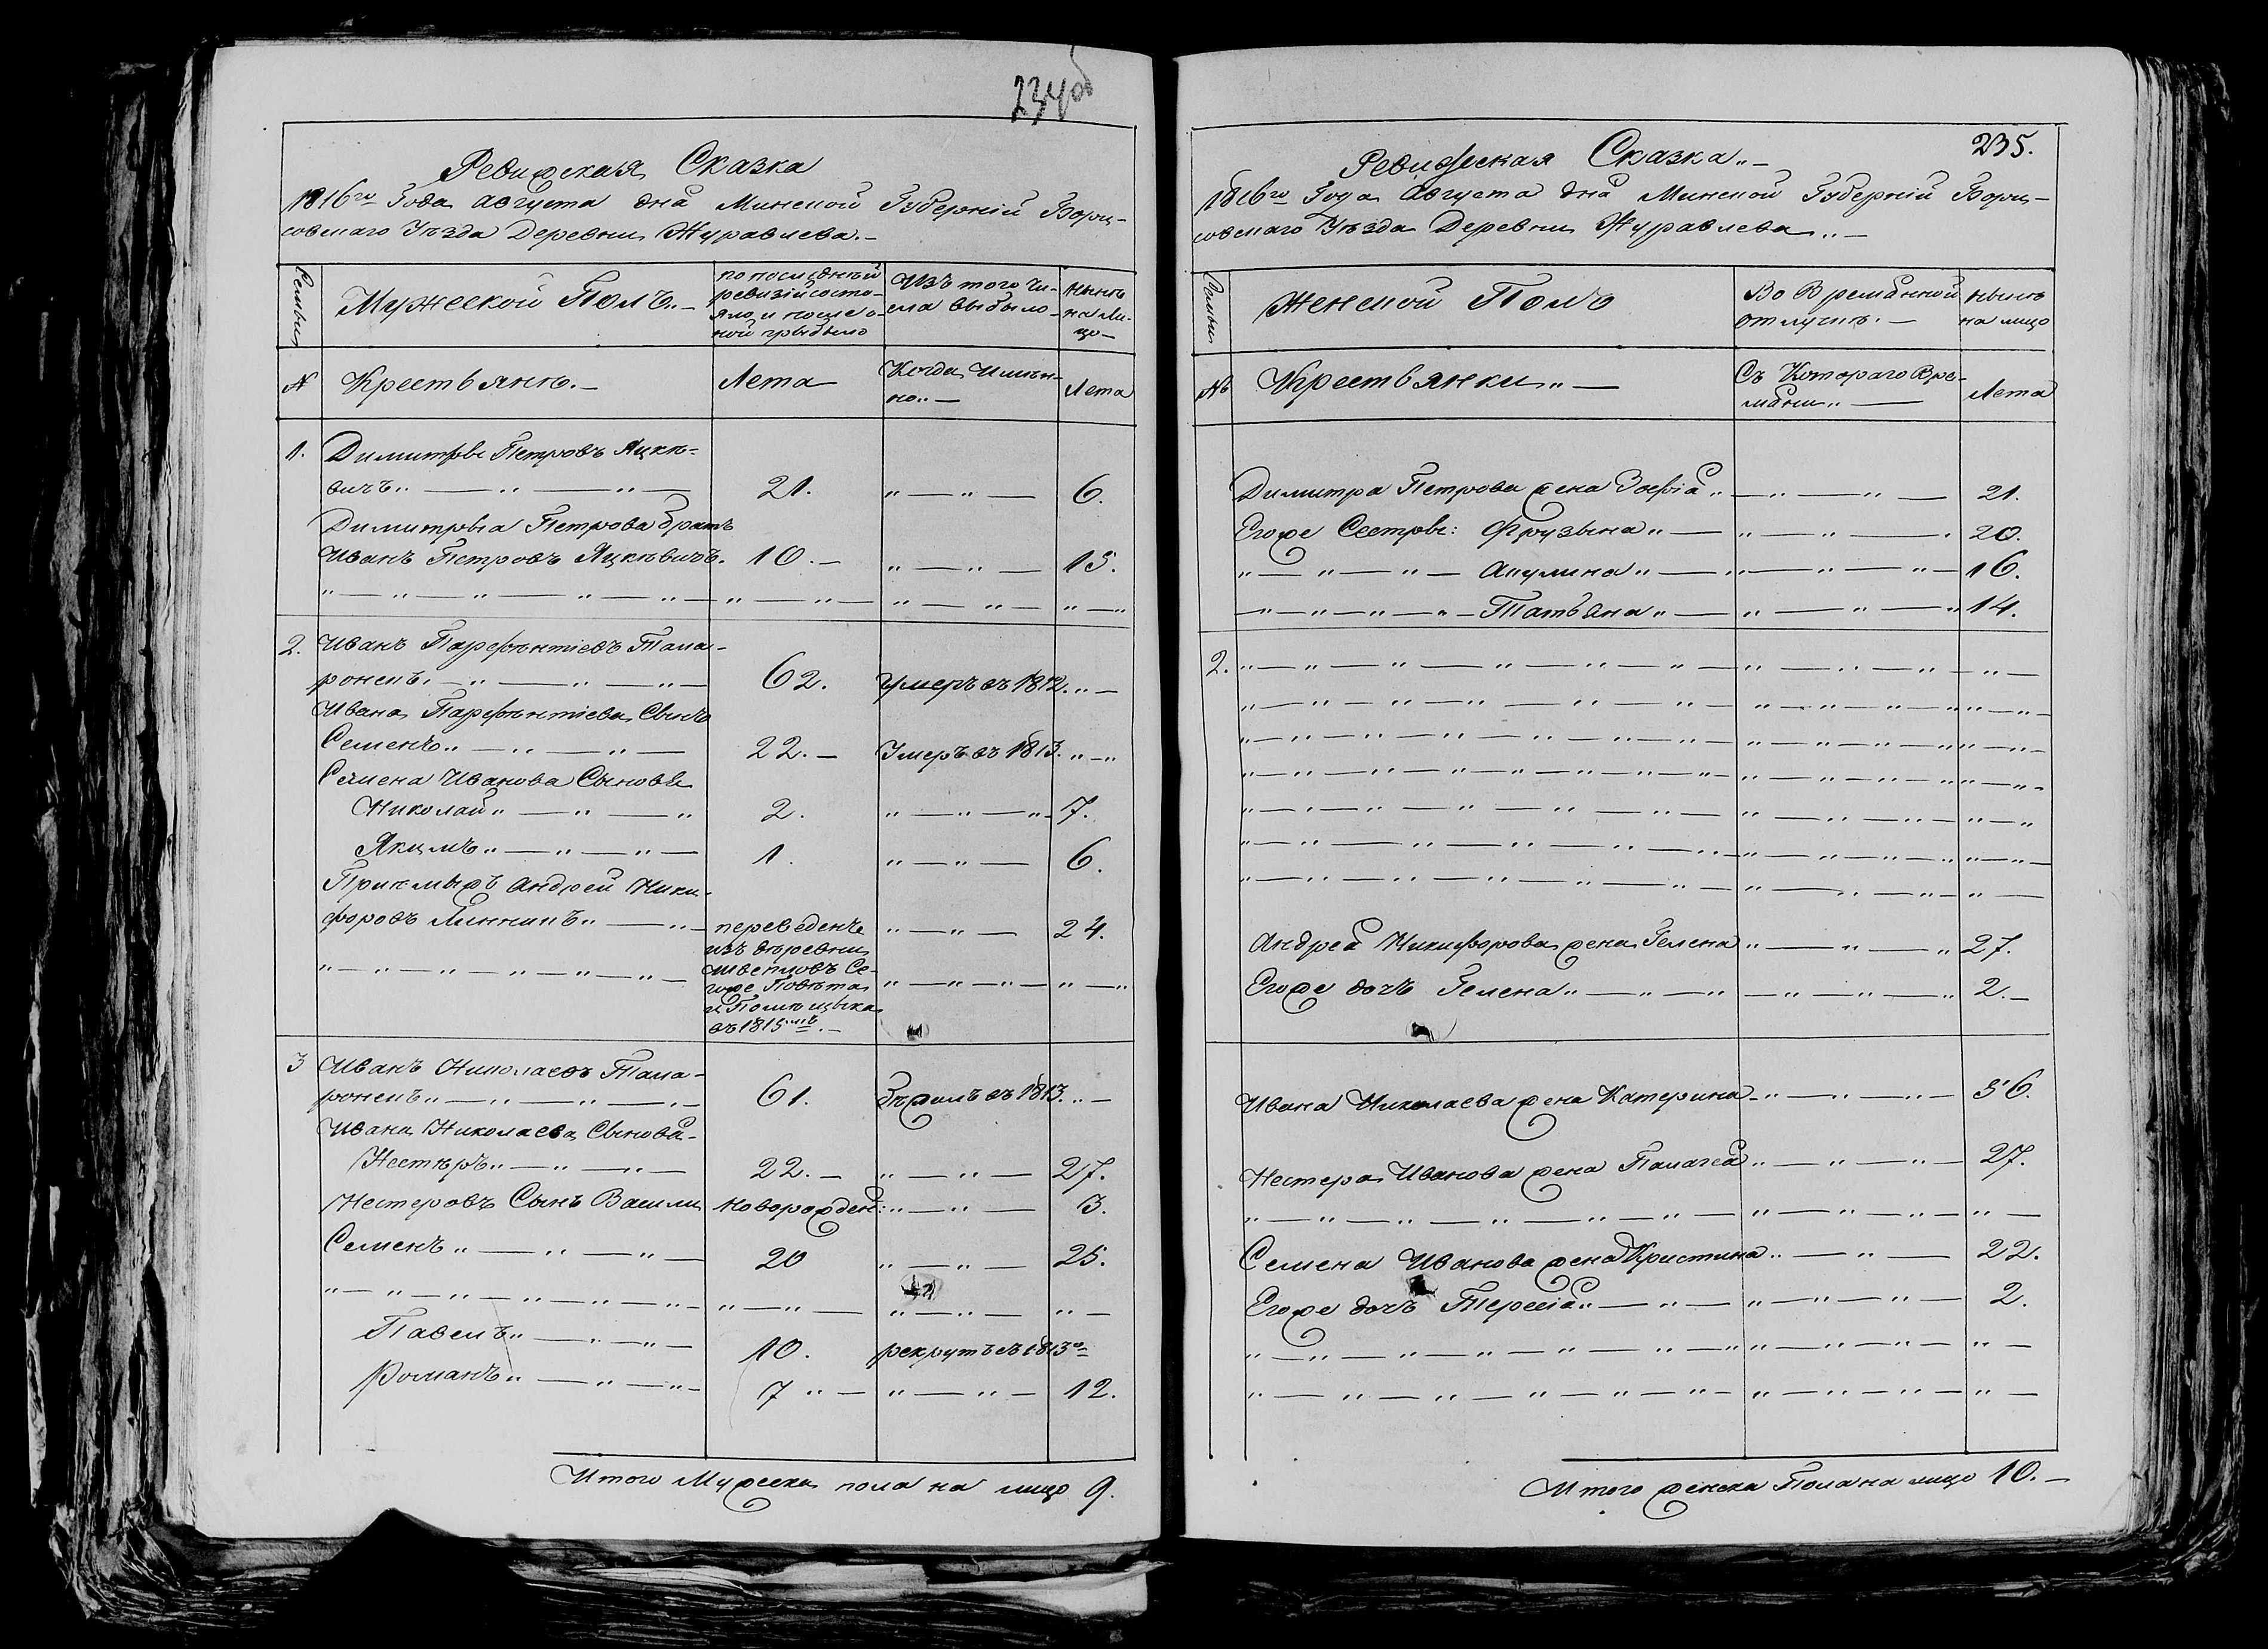 234об
Ревижская Сказка
1816го Года августа дня Минской Губерніи Бори-
совскаго Уѣзда Деревни Журавлева.-
Семьи
Мужеской Полъ.-
по последней
ревизіи состо-
яло и после о-
ной прибыло
Изъ того чи-
сла выбыло
нынѣ
на ли-
цо-
№
Крестьянѣ.-
Лета
Когда Имян-
но.-
Лета
1. Димитръ Петровъ Яцке-
вичъ 21. 6.
Димитрыа Петрова братъ
Иванъ Петровъ Яцкевичъ. 10.- 15.
2. Иванъ Парфѣнтіевъ Тала-
ронекъ. 62. Умеръ въ 1812.
Ивана Парфѣнтіева Сынъ
Семенъ 22.- Умеръ въ 1813.
Семена Иванова Сыновья
Николай 2. 7.
Якимъ 1. 6.
Приемышъ Андрей Ники-
форовъ переведенъ 24.
изъ деревни
Се-
гоже Повѣта
и Помѣщыка
въ 1815мъ.-
3 Иванъ Николаевъ Тала-
ронекъ 61. Бѣжалъ въ 1813.
Ивана Николаева Сыновья-
Нестеръ 22.- 27.
Нестеровъ Сынъ Васили новорожден: 3.
Семенъ 20 25.
Павелъ 10. рекрутъ въ 1813го
Романъ 7 12.
Итого Мужеска пола на лицо 9.
235.
Ревижеская Сказка.-
1816го Года Августа дня Минской Губерніи Бори-
совскаго Уѣзда Деревни Журавлева.-
Семьи
Женской Полъ
Во Времянной
отлучкѣ.-
нынѣ
на лицо
№
Крестьянки.-
Съ Котораго Вре-
мяни.-
Лета
Димитра Петрова жена Зофія 21.
Егоже Сестры: Фрузына 20.
Акулина 16.
Татьяна 14.
2.
Андрея Никифорова жена Гелена 27.
Егоже дочъ Гелена 2.-
Ивана Николаева жена Катерина 56.
Нестера Иванова жена Палагея 27.
Семена Иванова жена Кристина 22.
Егоже дочъ Тересія 2.
Итого женска Пола на лицо 10.-